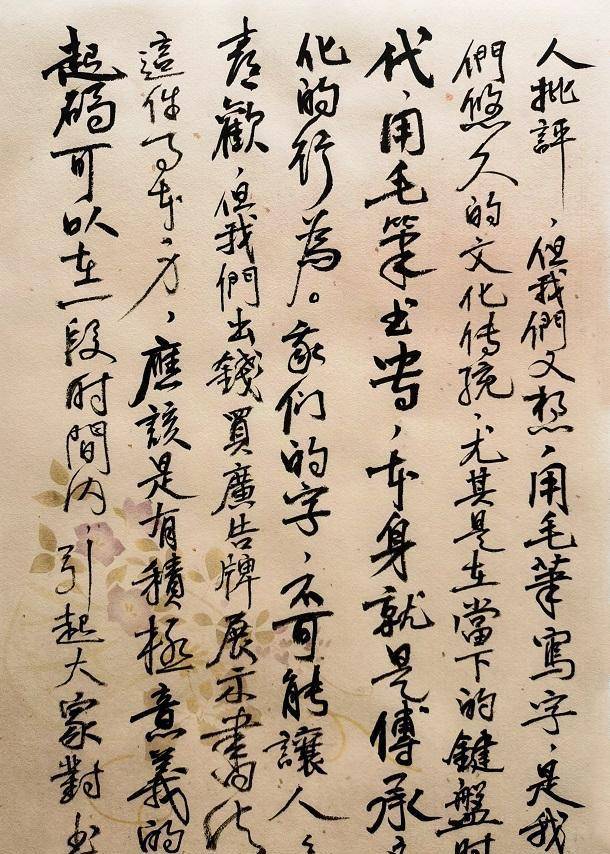 人批評，但我們又想，用毛筆寫字，是我
們悠久的文化传统，尤其是在當下的鍵盤时
代，用毛筆书写，本身就是傳承文
化的行為。我们的字，不可能讓人人
喜歡，但我們出錢買廣告牌展示書法
這件事本身，應該是有積極意義的
起碼可以在一段时間内，引起大家對书